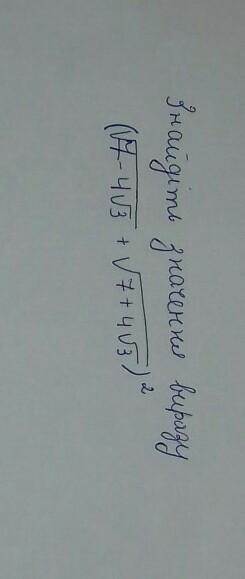 Знайдіть значення виразу
(√7-4√3 + √7+4√3)²